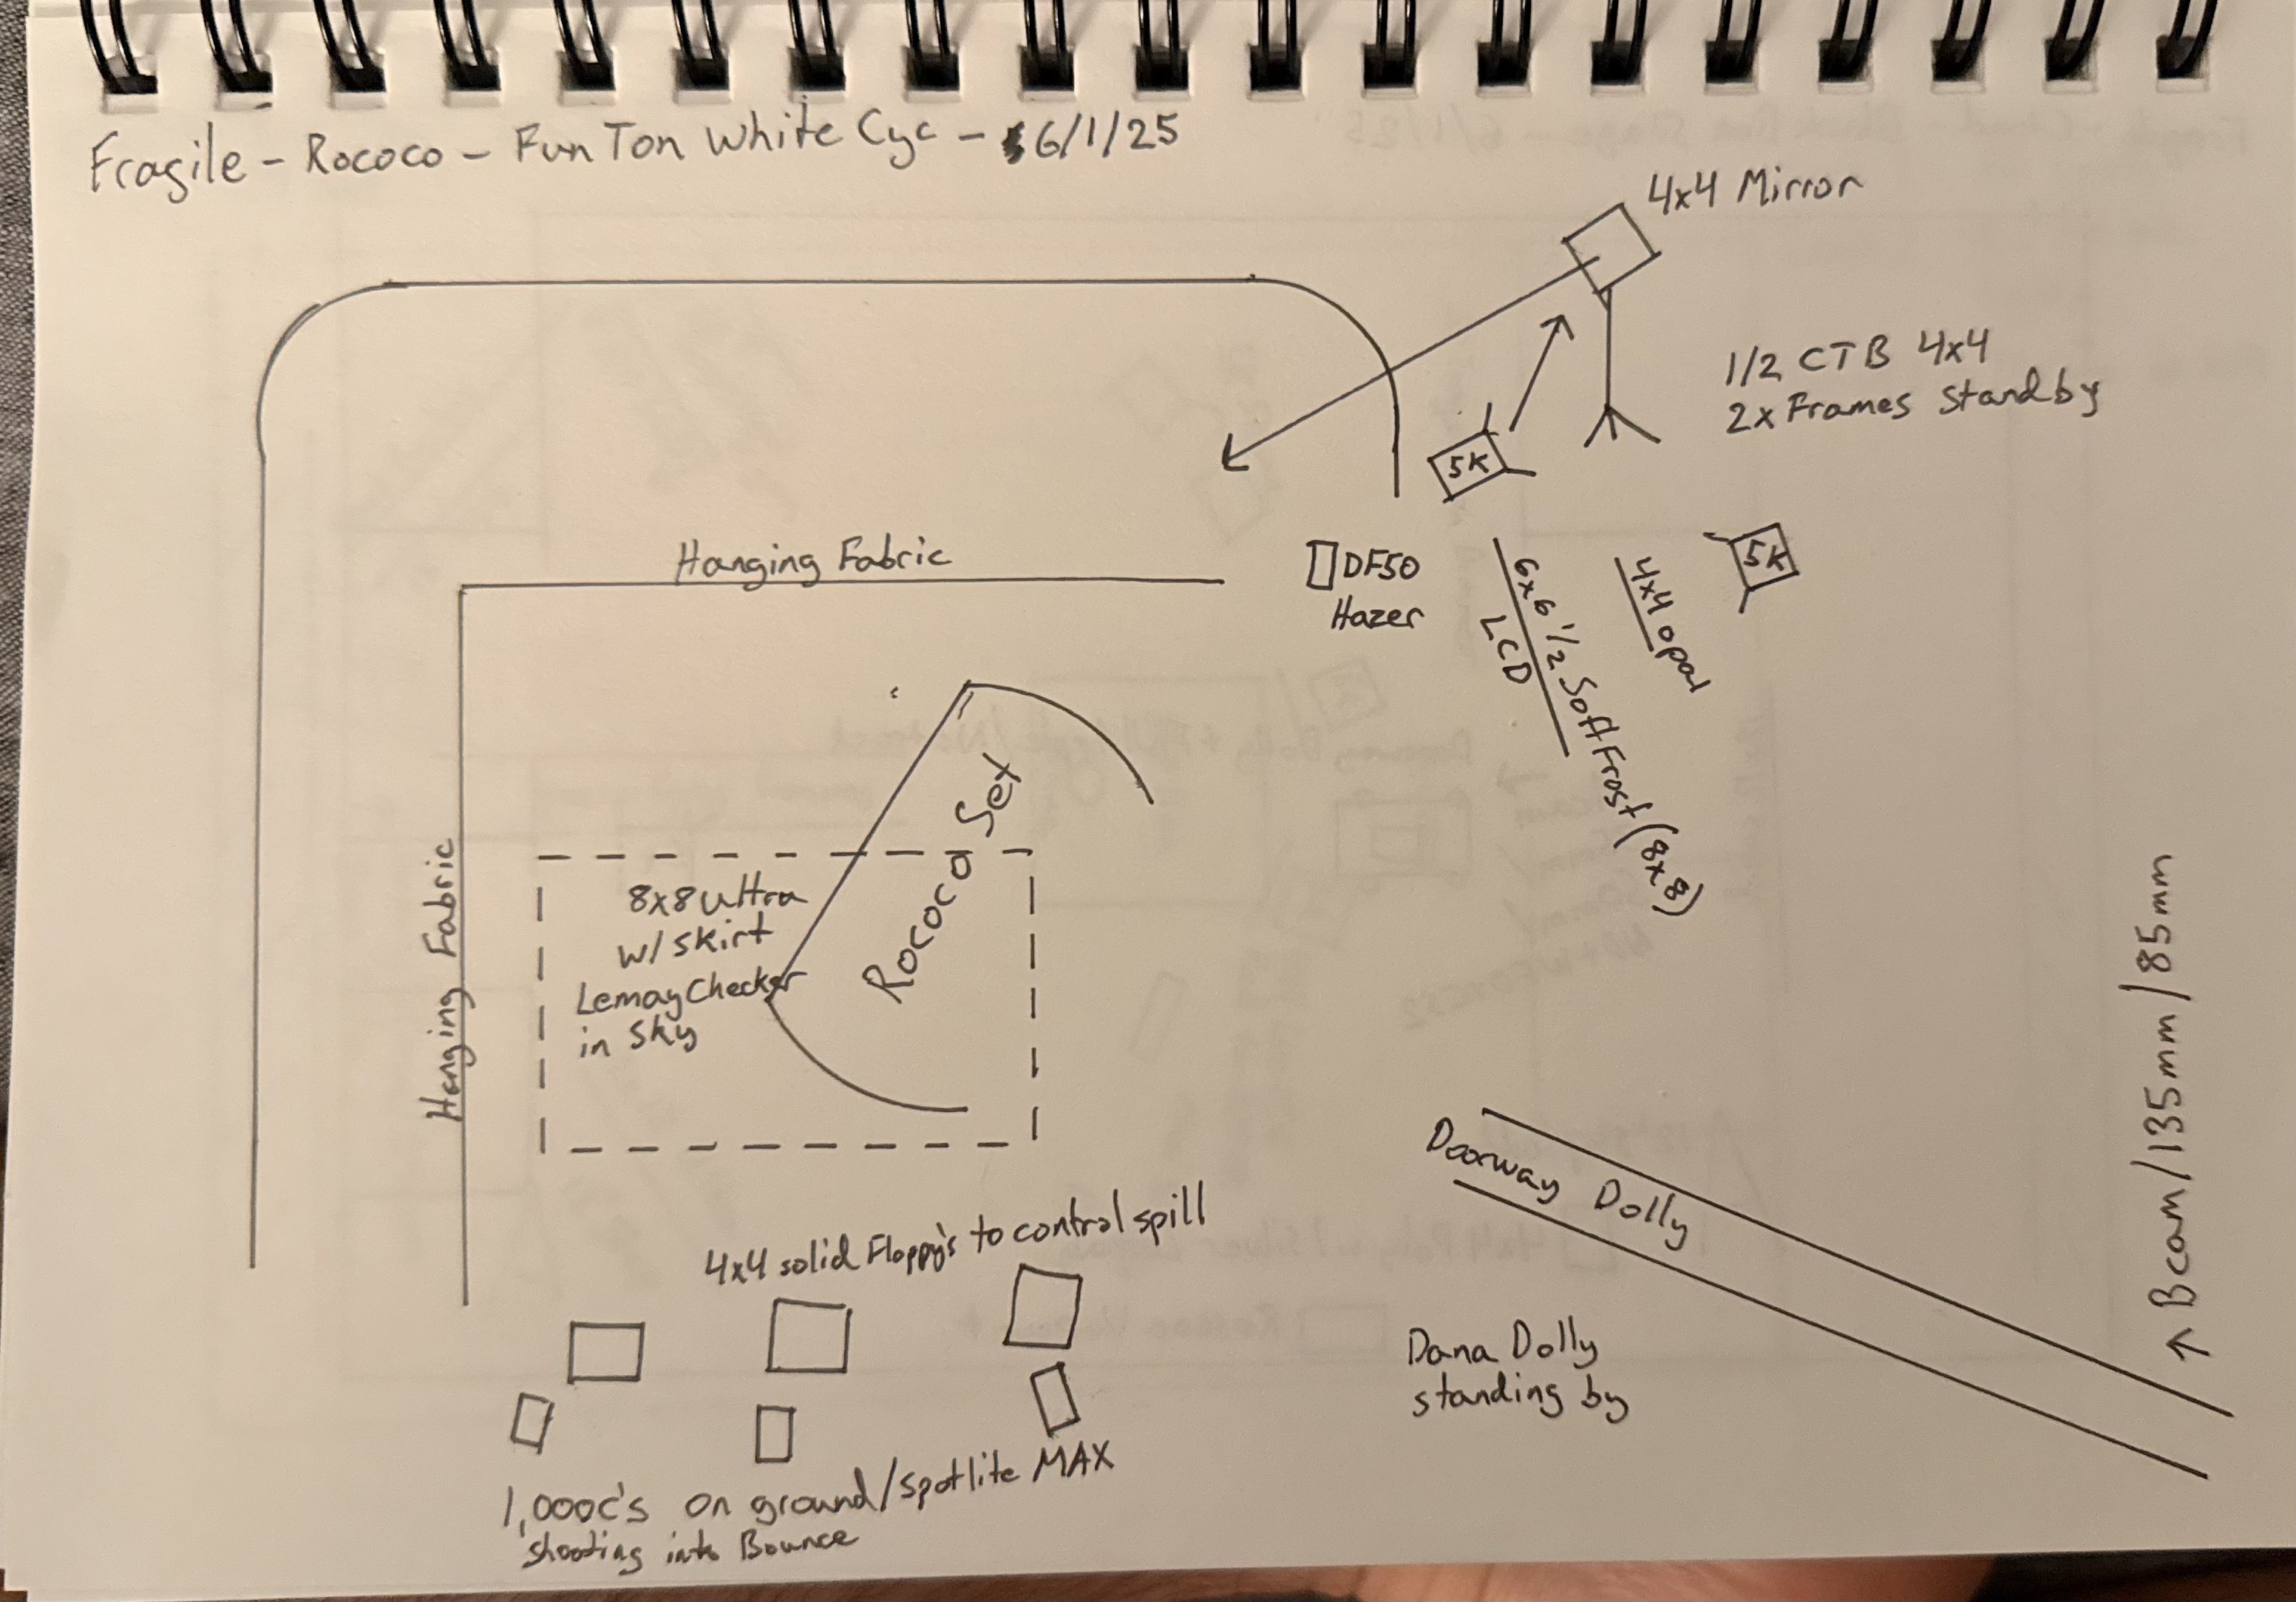 Fragile - Rococo - Fun Ton White Cyc - 6/1/25
4x4 Mirror
1/2 CTB 4x4
2x Frames Standby
5K
5K
Hanging Fabric
DF50
Hazer
6x6 1/2 Soft Frost (8x8)
LCD
4x4 opal
Rococo Set
8x8 Ultra
w/ skirt
Lemay Checker
in Sky
Hanging Fabric
Doorway Dolly
↑ Bcam/135mm/85mm
4x4 solid Floppy's to control spill
Dana Dolly
standing by
1,000c's on ground/spotlite MAX
shooting into Bounce